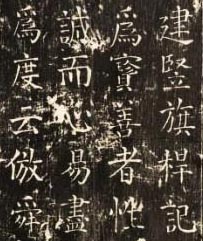 建豎旗桿記
為寳善者性
誠而心易盡
為度云倣舜